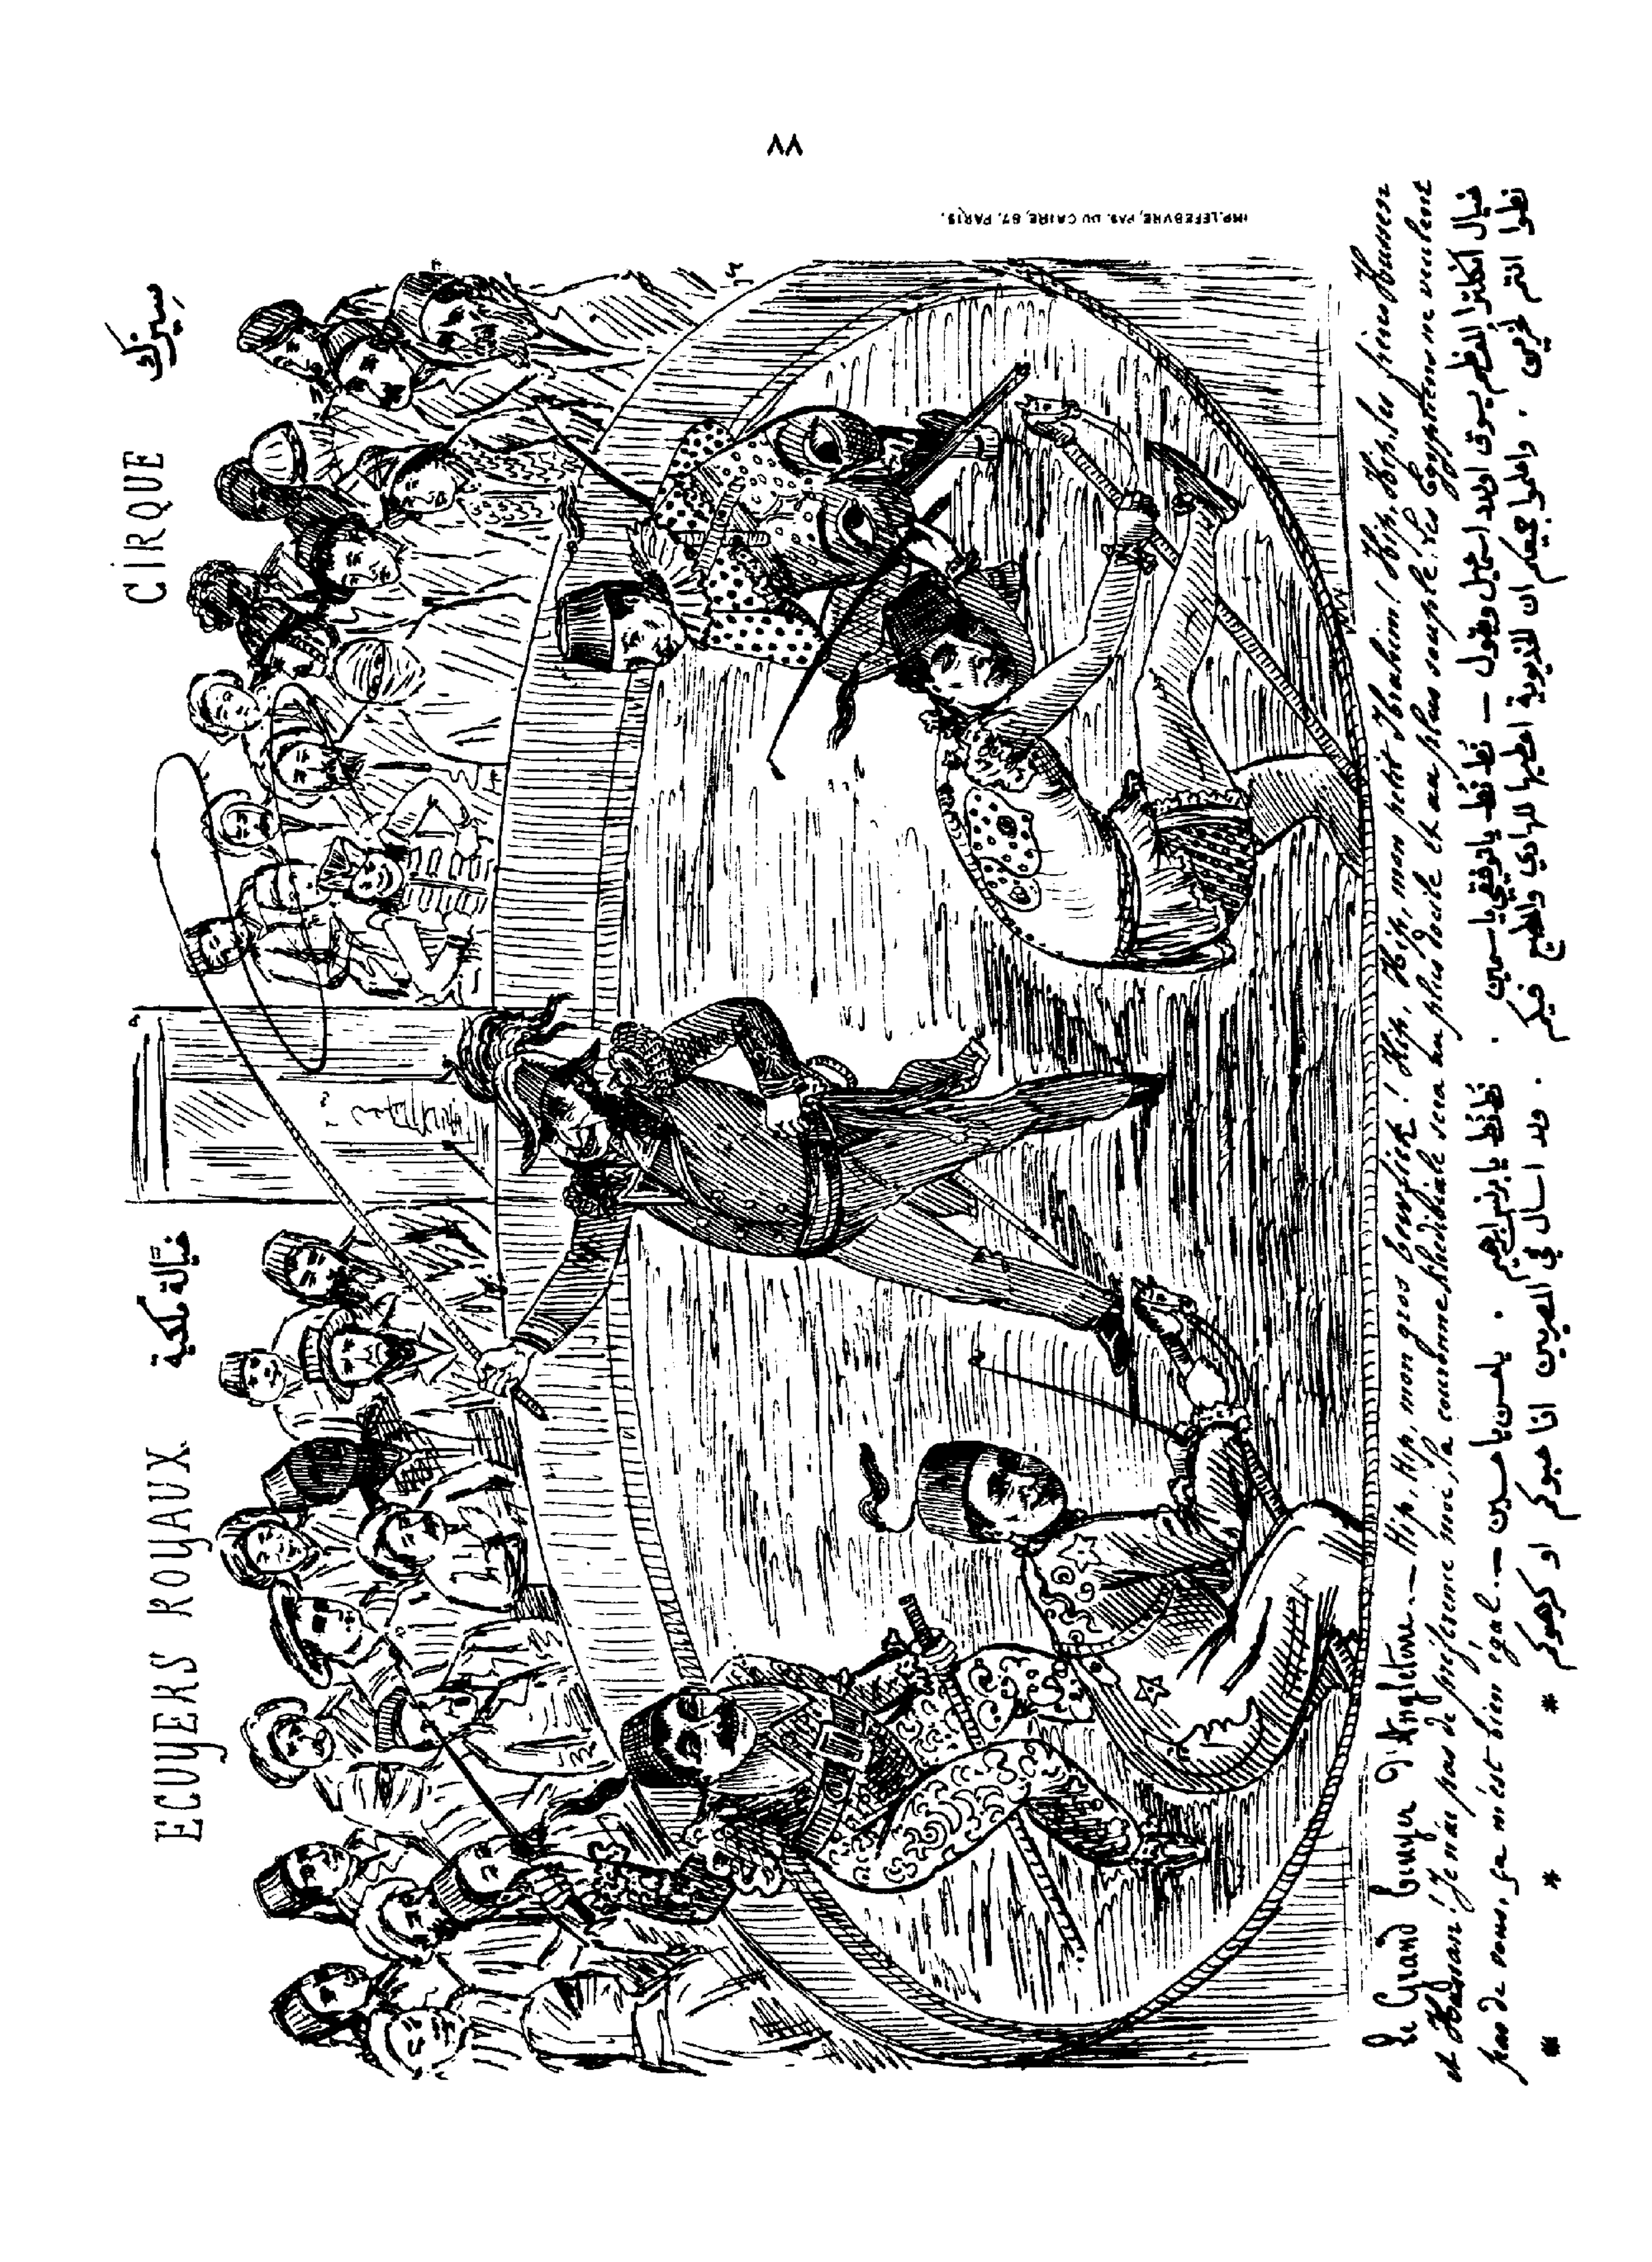 ٧٨
CIRQUE
سيرك
ECUYERS ROYAUX
خيالة ملكية
IMP. LEFEBVRE, PAS. DU CAIRE, 87. PARIS.
Le Grand Ecuyer d'Angleterre. — Hip, hip, mon gros Tewfick! Hip, Hip, mon petit Ibrahim! Hip, Hip, les frères Hussen
et Hassan! Je n'ai pas de préférence moi, la couronne khédiviale sera au plus docile et au plus souple. Les Egyptiens ne veulent
pas de vous, ça m'est bien égal. —
خيال انكلترا الفظم يسوق اولاد اسماعيل ويقول — نط نط يا توفيق يا سمين . نط نط يا برنس ابراهيم . يا حسن يا حسين —
نطوا انتم . واعلموا جميعكم ان الخديوية اعطيها للهادي والمطيع فيكم . ولا اسأل في المصريين اذا حبوكم او كرهوكم
* * *